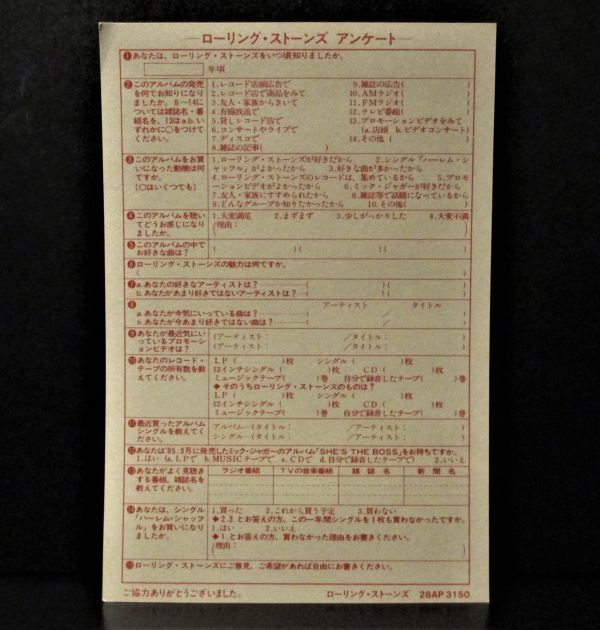 ローリング・ストーンズ アンケート
❶あなたは、ローリング・ストーンズをいつ頃知りましたか。
年頃
❷このアルバムの発売を何でお知りになりましたか。8〜14については雑誌名・番組名を、13はa.b.いずれかに○をつけてください。
1.レコード店頭広告で 9.雑誌の広告( )
2.レコード店で商品をみて 10.AMラジオ( )
3.友人・家族からきいて 11.FMラジオ( )
4.有線放送で 12.テレビ番組( )
5.貸しレコード店で 13.プロモーションビデオをみて
6.コンサートやライブで (a.店頭 b.ビデオコンサート)
7.ディスコで 14.その他( )
8.雑誌の記事( )
❸このアルバムをお買いになった動機は何ですか。(○はいくつでも)
1.ローリング・ストーンズが好きだから 2.シングル「ハーレム・シャッフル」がよかったから 3.好きな曲が多かったから
4.ローリング・ストーンズのレコードは、集めているから 5.プロモーションビデオがよかったから 6.ミック・ジャガーが好きだから
7.友人・家族にすすめられたから 8.雑誌等で話題になっているから
9.どんなグループか知りたかったから 10.その他( )
❹このアルバムを聴いてどうお感じになりましたか。
1.大変満足 2.まずまず 3.少しがっかりした 4.大変不満
(理由: )
❺このアルバムの中でお好きな曲は?
( )( )( )
❻ローリング・ストーンズの魅力は何ですか。
( )
❼a.あなたの好きなアーティストは?( )( )
b.あなたがあまり好きではないアーティストは?( )( )
❽ アーティスト タイトル
a.あなたが今気にいっている曲は? /
b.あなたが今あまり好きではない曲は? /
❾あなたが最近気にいっているプロモーションビデオは?
(アーティスト: /タイトル: )
(アーティスト: /タイトル: )
❿あなたのレコード・テープの所有数を教えてください。
LP( )枚 シングル( )枚
12インチシングル( )枚 CD( )枚
ミュージックテープ( )巻 自分で録音したテープ( )巻
◆そのうちローリング・ストーンズのものは?
LP( )枚 シングル( )枚
12インチシングル( )枚 CD( )枚
ミュージックテープ( )巻 自分で録音したテープ( )巻
⓫最近買ったアルバムシングルを教えてください。
アルバム―(タイトル: /アーティスト: )
シングル―(タイトル: /アーティスト: )
⓬あなたは'85.3月に発売したミック・ジャガーのアルバム「SHE'S THE BOSS」をお持ちですか。
1.はい (a.LPで b.MUSICテープで c.CDで d.自分で録音したテープで) 2.いいえ
⓭あなたがよく見聴きする番組、雑誌名を教えてください。
ラジオ番組 TVの音楽番組 雑誌名 新聞名
⓮あなたは、シングル「ハーレム・シャッフル」をお買いになりましたか。
1.買った 2.これから買う予定 3.買わない
◆2.3.とお答えの方、この一年間シングルを1枚も買わなかったですか。
1.はい 2.いいえ
◆1.とお答えの方、買わなかった理由をお書きください。
(理由: )
⓯ローリング・ストーンズにご意見、ご希望があれば自由にお書きください。
ご協力ありがとうございました。 ローリング・ストーンズ 28AP 3150